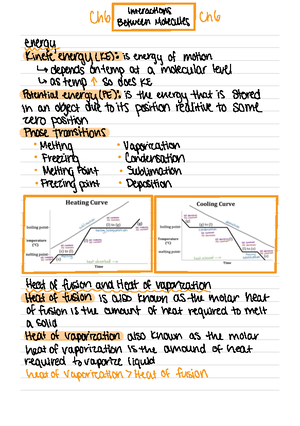 Ch6 Interactions Between Molecules Ch6
energy
Kinetic energy (KE): is energy of motion
↳ depends on temp at a molecular level
↳ as temp ↑ so does KE
Potential energy (PE): is the energy that is stored
in an object due to its position relative to some
zero position
Phase Transitions
• Melting • Vaporization
• Freezing • Condensation
• Melting Point • Sublimation
• Freezing point • Deposition
Heating Curve Cooling Curve
boiling point boiling point
Temperature (°C) Temperature (°C)
melting point
Time Time
Heat of fusion and Heat of vaporization
Heat of fusion is also known as the molar heat
of fusion is the amount of heat required to melt
a solid
Heat of vaporization also known as the molar
heat of vaporization is the amound of heat
required to vaporize liquid
heat of vaporization > Heat of fusion